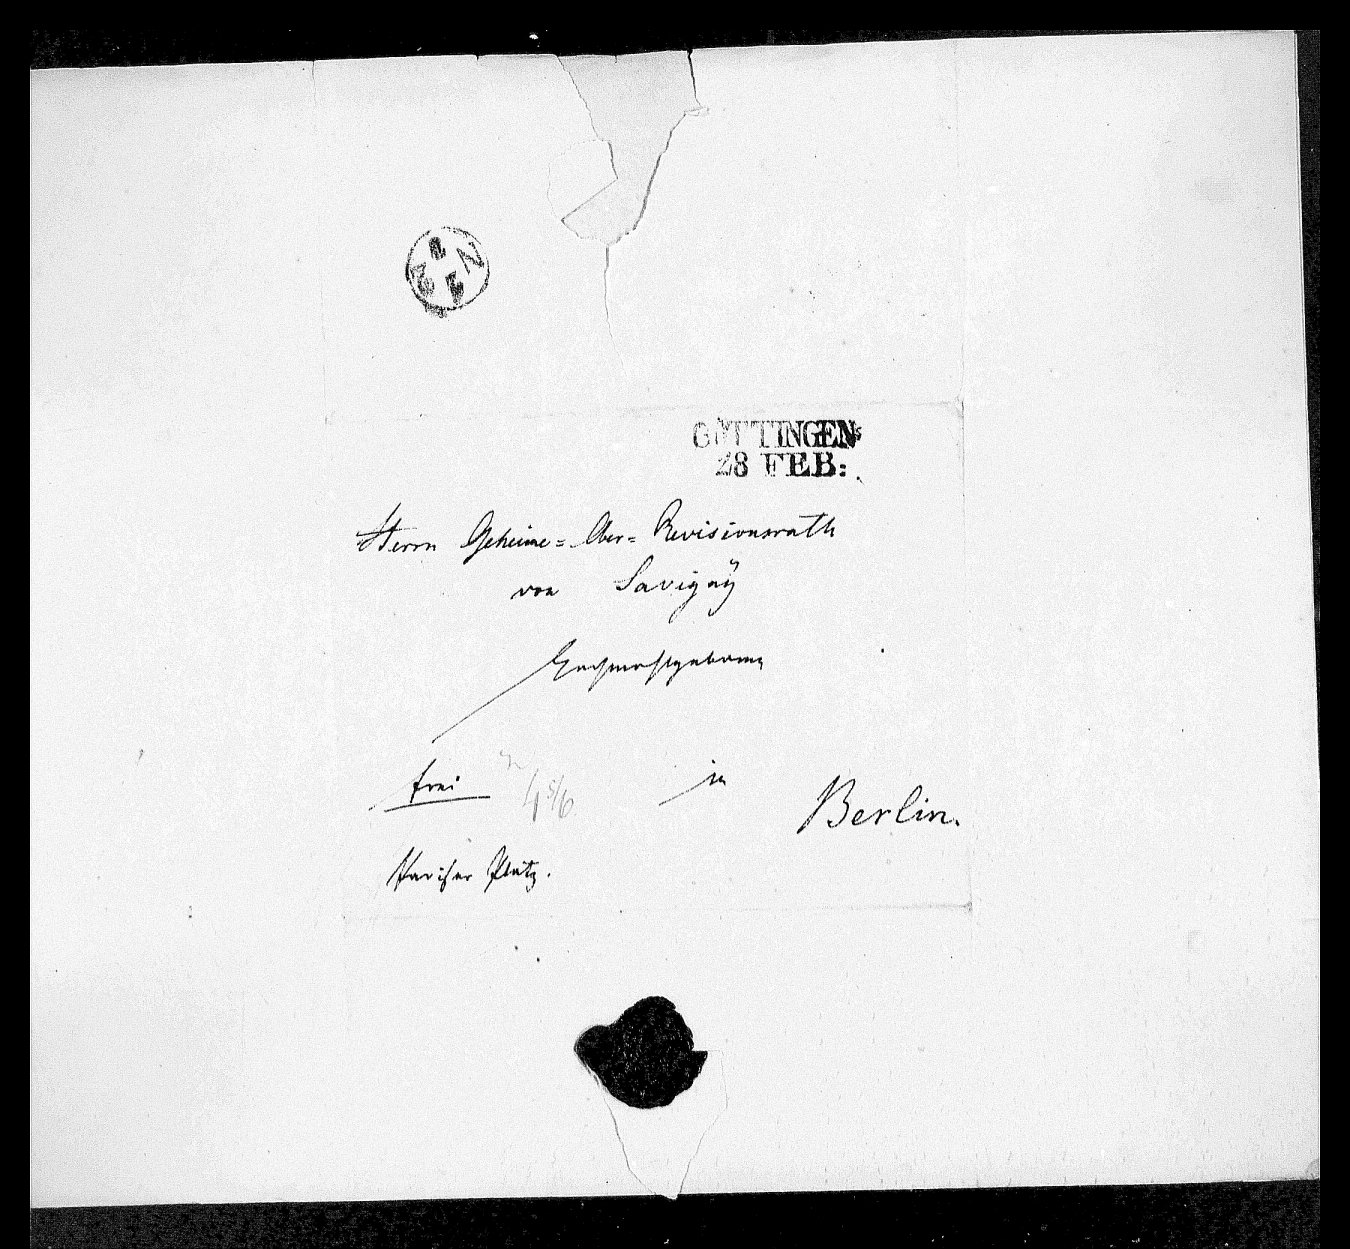 GÖTTINGEN
28 FEB:
Herrn Geheime-Ober-Revisionsrath
von Savignÿ
Hochwohlgeboren
frei
in
Berlin.
Pariser Platz.